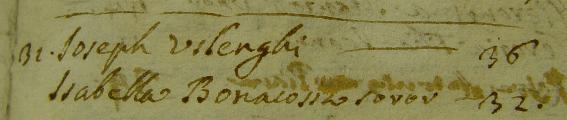 31. Joseph Vslenghi — 36
Isabella Bonacossa soror — 32.